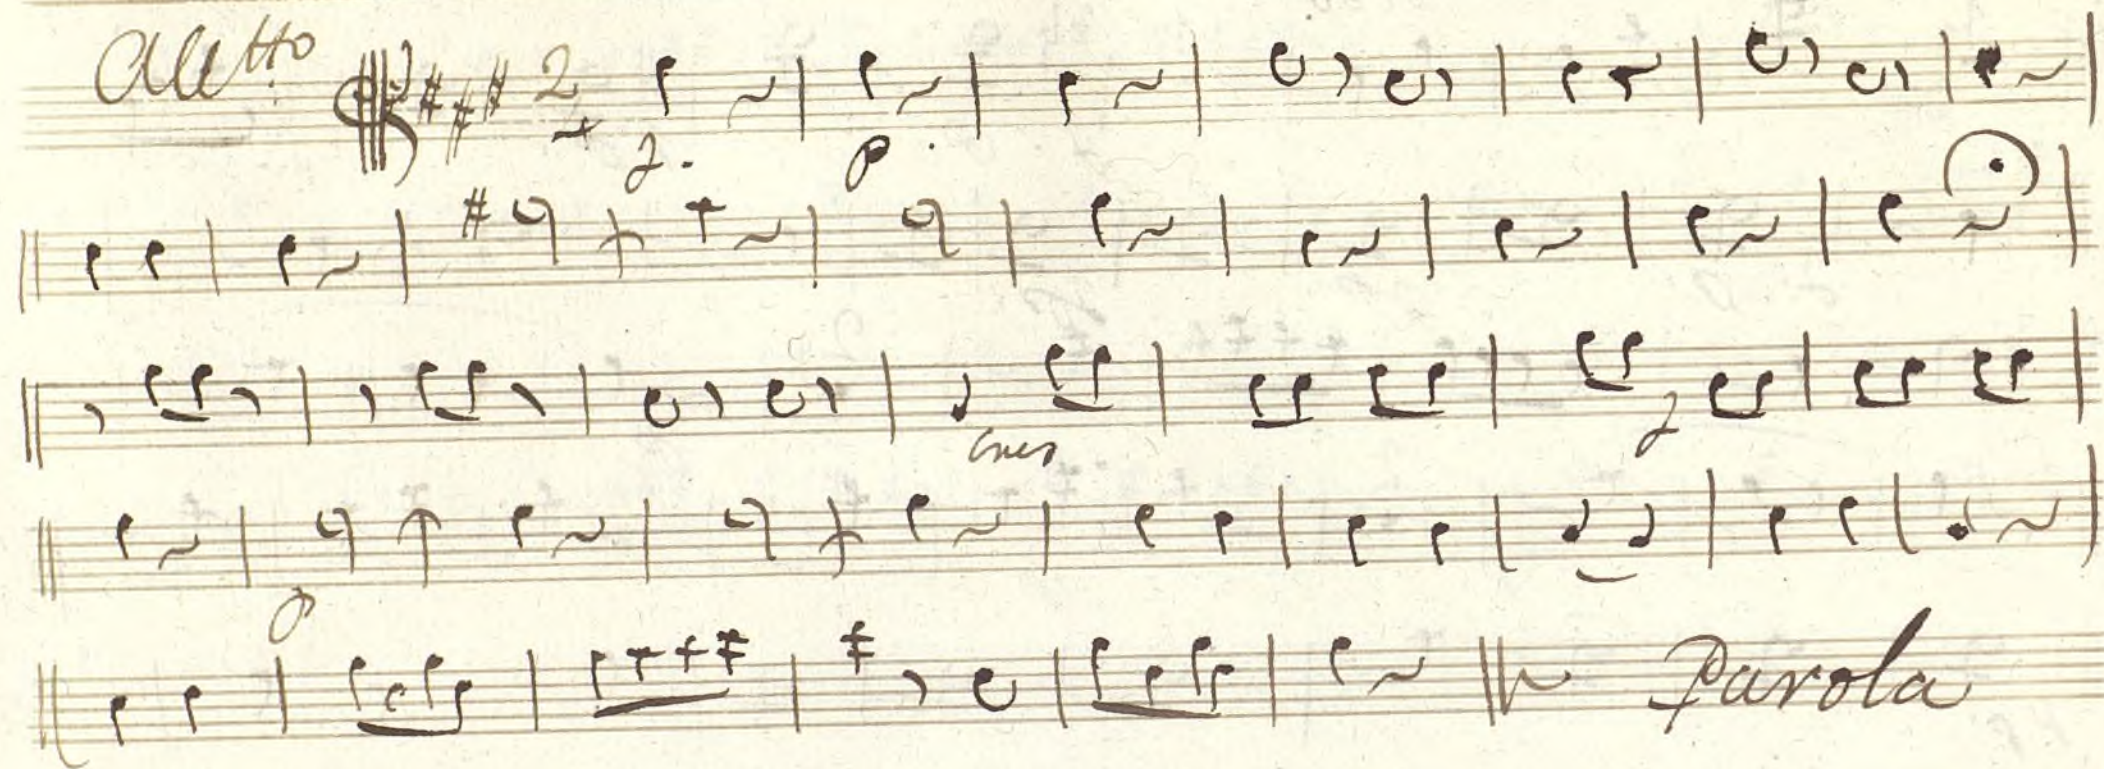 Alltto
2
4
f. p.
cres f
p
Parola